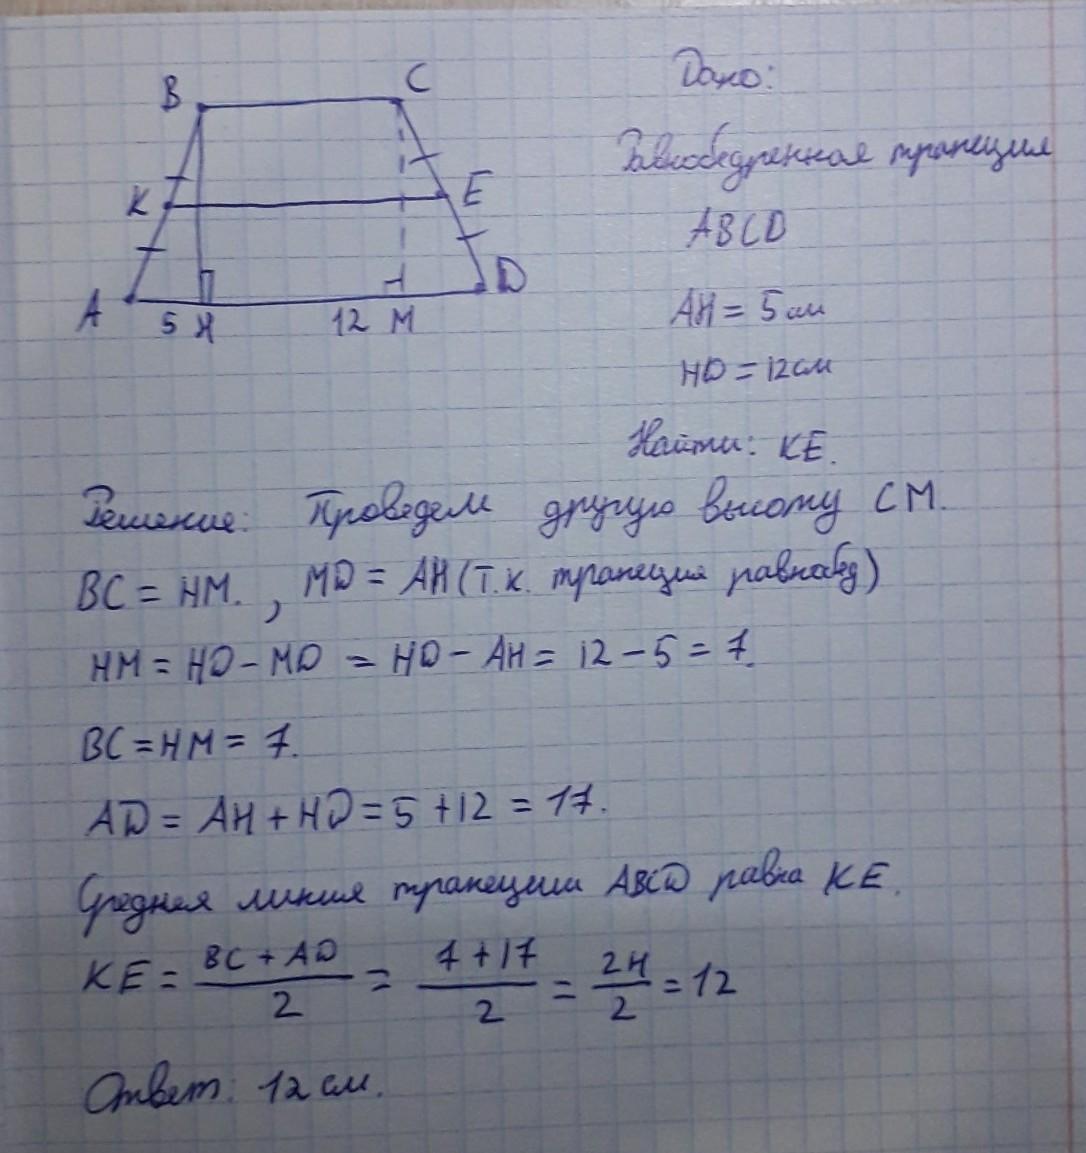 B C
K E
A D
5 H 12 M
Дано:
Равнобедренная трапеция
ABCD
AH = 5 см
HD = 12 см
Найти: KE.
Решение: Проведем другую высоту CM.
BC = HM. , MD = AH (т.к. трапеция равнобед)
HM = HD - MD = HD - AH = 12 - 5 = 7.
BC = HM = 7.
AD = AH + HD = 5 + 12 = 17.
Средняя линия трапеции ABCD равна KE.
KE = (BC + AD)/2 = (7 + 17)/2 = 24/2 = 12
Ответ: 12 см.